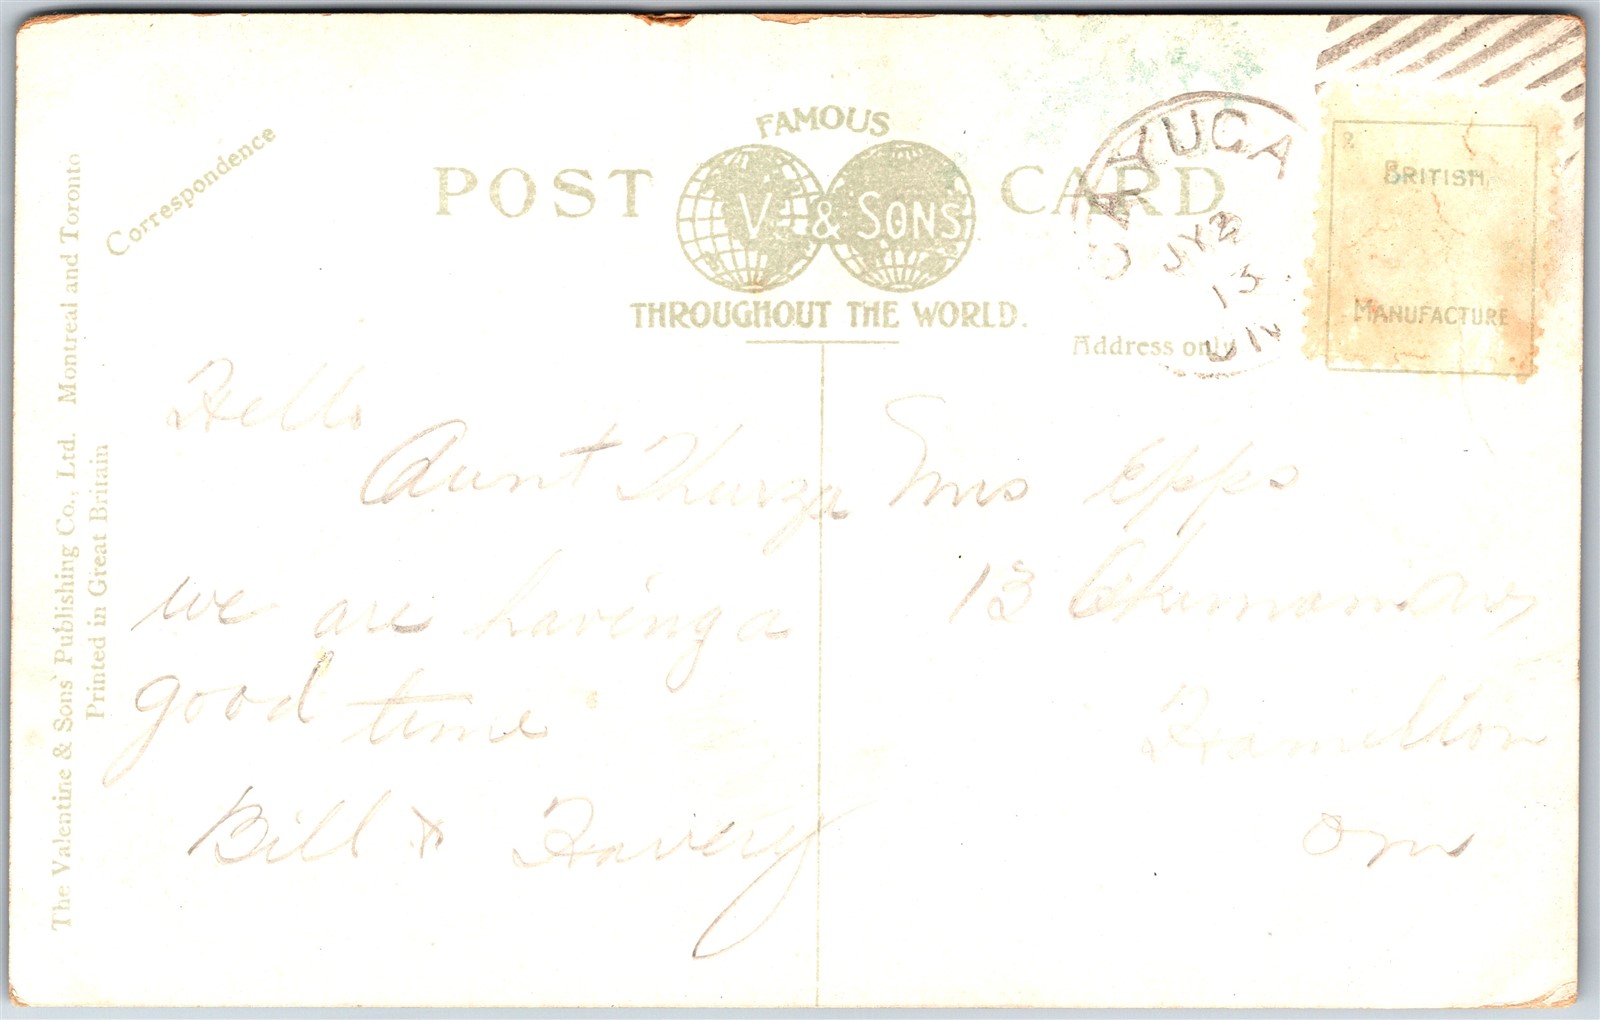 Correspondence
FAMOUS
POST CARD
V & SONS
THROUGHOUT THE WORLD.
Address only
CAYUGA
JY 2
13
BRITISH
MANUFACTURE
The Valentine & Sons' Publishing Co., Ltd. Montreal and Toronto
Printed in Great Britain
Hello
Aunt Thurza
we are having a
good time
Bill &
Mrs Epps
13
Hamilton